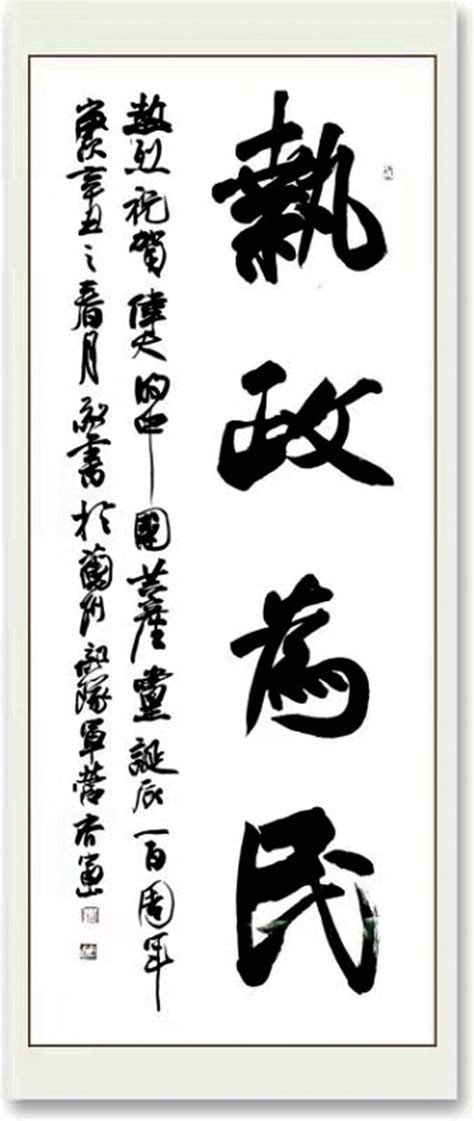 執政為民
熱烈祝賀偉大的中國共產黨誕辰一百周年
歲次辛丑之春月敬書於蘭州部隊軍營